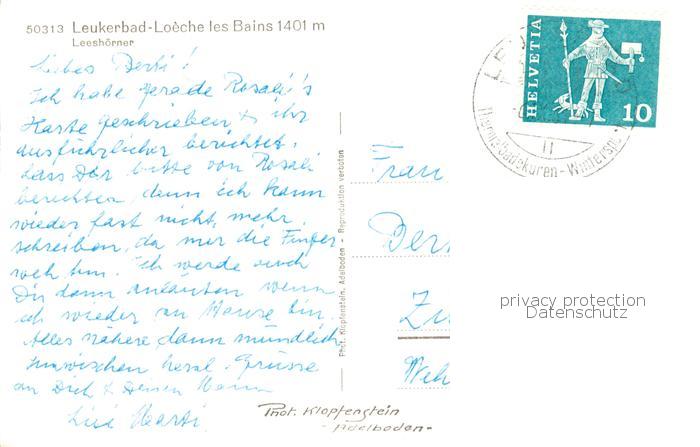 50313 Leukerbad-Loèche les Bains 1401 m
Leeshörner
Liebes Berti!
Ich habe gerade Rosali's
Karte geschrieben & ihr
ausführlicher berichtet.
Lass Dir bitte von Rosali
berichten denn ich kann
wieder fast nicht mehr
schreiben, da mir die Finger
weh tun. Ich werde auch
Dir dann anläuten wenn
ich wieder zu Hause bin.
Alles nähere dann mündlich
Inzwischen herzl. Grüsse
an Dich & Deinen Mann
Phot. Klopfenstein
-Adelboden-
Phot. Klopfenstein, Adelboden - Reproduktion verboten
HELVETIA
10
Thermal-Badekuren - Wintersp
11
Frau
Ber
Zü
Weh
privacy protection
Datenschutz